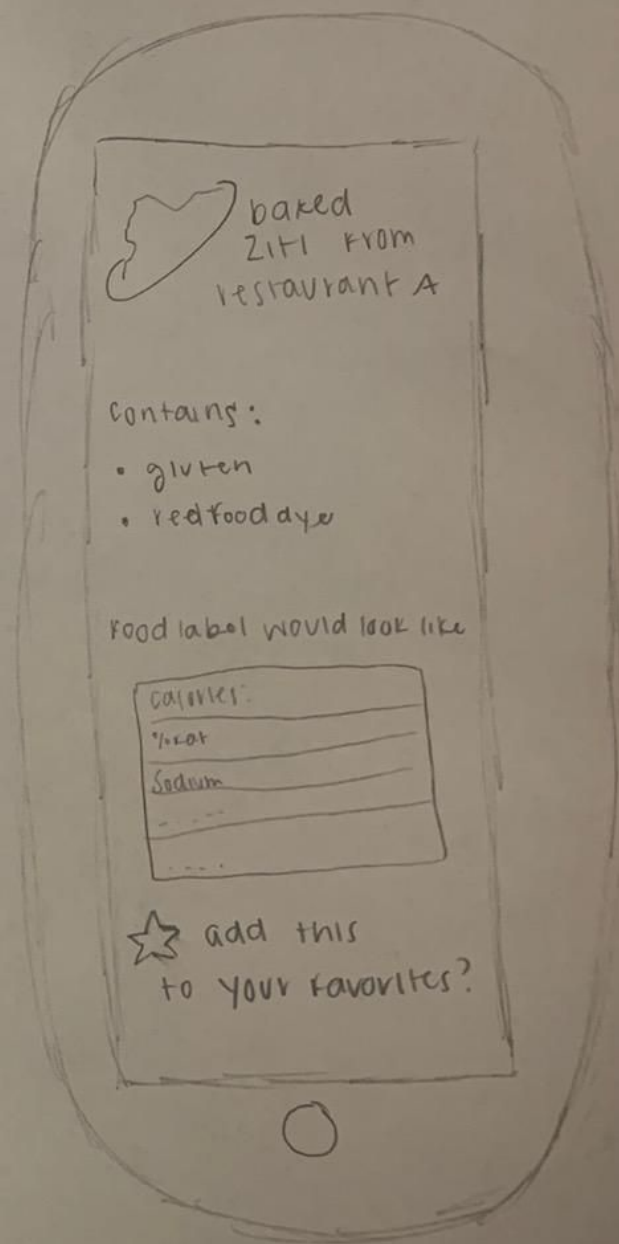 baked
ziti from
restaurant A
contains:
• gluten
• red food dye
Food label would look like
calories:
% fat
Sodium
.....
.....
add this
to your favorites?